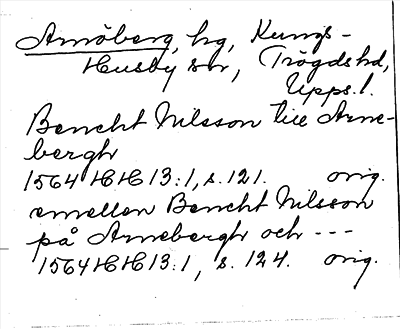 Arnöberg, hg, Kungs-
Husby sn, Trögds hd,
Upps. l.
Bencht Nilsson till Arne-
bergh
1564 HH 13:1, s. 121. orig.
emellan Bencht Nilsson
på Arnebergh och ---
1564 HH 13:1, s. 124. orig.